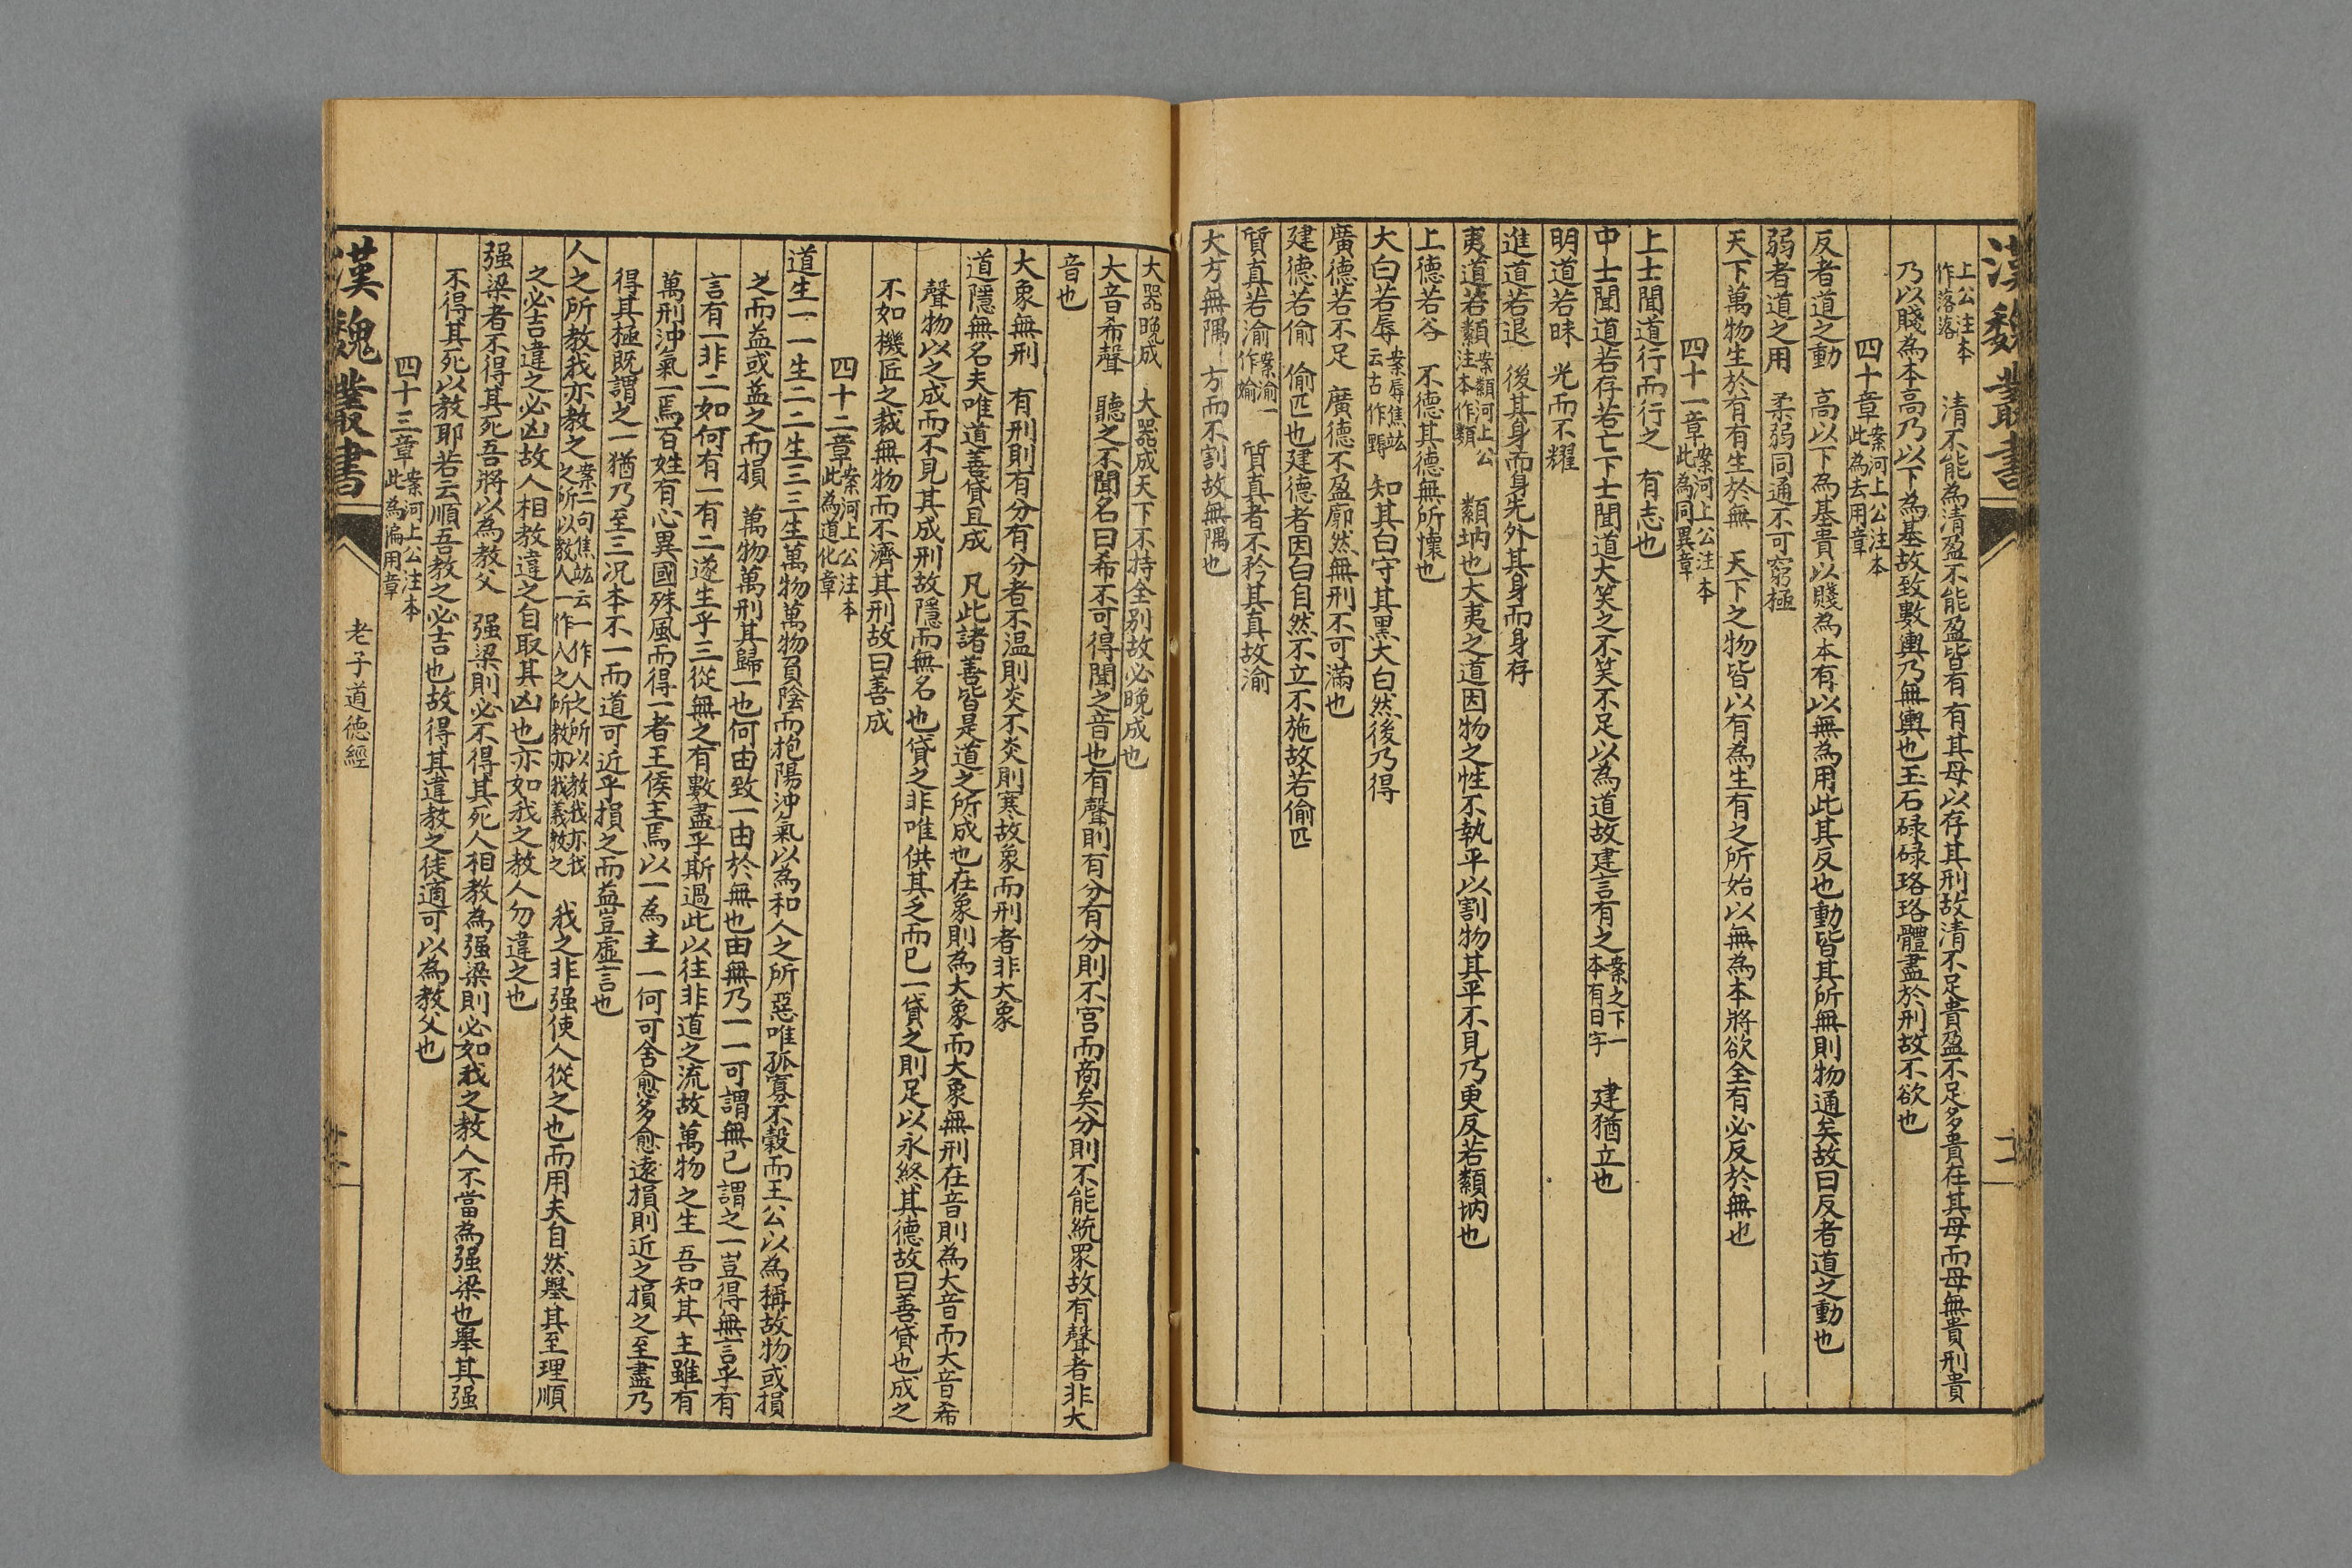 漢魏叢書
上公注本
作落落
清不能為清盈不能盈皆有　有其母以存其刑故清不足貴盈不足多貴在其母而母無貴刑貴
乃以賤為本高乃以下為基故致數輿乃無輿也玉石碌碌珞珞體盡於刑故不欲也
四十章案河上公注本
此為去用章
反者道之動　高以下為基貴以賤為本有以無為用此其反也動皆其所無則物通矣故曰反者道之動也
弱者道之用　柔弱同通不可窮極
天下萬物生於有有生於無　天下之物皆以有為生有之所始以無為本將欲全有必反於無也
四十一章案河上公注本
此為同異章
上士聞道行而行之　有志也
中士聞道若存若亡下士聞道大笑之不笑不足以為道故建言有之案之下一
本有曰字　建猶立也
明道若昧　光而不耀
進道若退　後其身而身先外其身而身存
夷道若纇案纇河上公
注本作類　纇㘨也大夷之道因物之性不執平以割物其平不見乃更反若纇㘨也
上德若谷　不德其德無所懷也
大白若辱案辱焦竑
云古作䵟　知其白守其黑大白然後乃得
廣德若不足　廣德不盈廓然無刑不可滿也
建德若偷　偷匹也建德者因自自然不立不施故若偷匹
質真若渝案渝一
作媮　質真者不矜其真故渝
大方無隅　方而不割故無隅也
大器晚成　大器成天下不持全別故必晚成也
大音希聲　聽之不聞名曰希不可得聞之音也有聲則有分有分則不宮而商矣分則不能統眾故有聲者非大
音也
大象無刑　有刑則有分有分者不温則炎不炎則寒故象而刑者非大象
道隱無名夫唯道善貸且成　凡此諸善皆是道之所成也在象則為大象而大象無刑在音則為大音而大音希
聲物以之成而不見其成刑故隱而無名也貸之非唯供其乏而已一貸之則足以永終其德故曰善貸也成之
不如機匠之裁無物而不濟其刑故曰善成
四十二章案河上公注本
此為道化章
道生一一生二二生三三生萬物萬物負陰而抱陽沖氣以為和人之所惡唯孤寡不轂而王公以為稱故物或損
之而益或益之而損　萬物萬刑其歸一也何由致一由於無也由無乃一一可謂無已謂之一豈得無言乎有
言有一非二如何有一有二遂生乎三從無之有數盡乎斯過此以往非道之流故萬物之生吾知其主雖有
萬刑沖氣一焉百姓有心異國殊風而得一者王侯主焉以一為主一何可舍愈多愈遠損則近之損之至盡乃
得其極既謂之一猶乃至三況本不一而道可近乎損之而益豈虛言也
人之所教我亦教之案二句焦竑云一作人之所以教我亦我
之所以教人一作人之所教亦我義教之　我之非强使人從之也而用夫自然舉其至理順
之必吉違之必凶故人相教違之自取其凶也亦如我之教人勿違之也
强梁者不得其死吾將以為教父　强梁則必不得其死人相教為强梁則必如我之教人不當為强梁也舉其强
不得其死以教耶若云順吾教之必吉也故得其違教之徒適可以為教父也
四十三章案河上公注本
此為徧用章
漢魏叢書
老子道德經